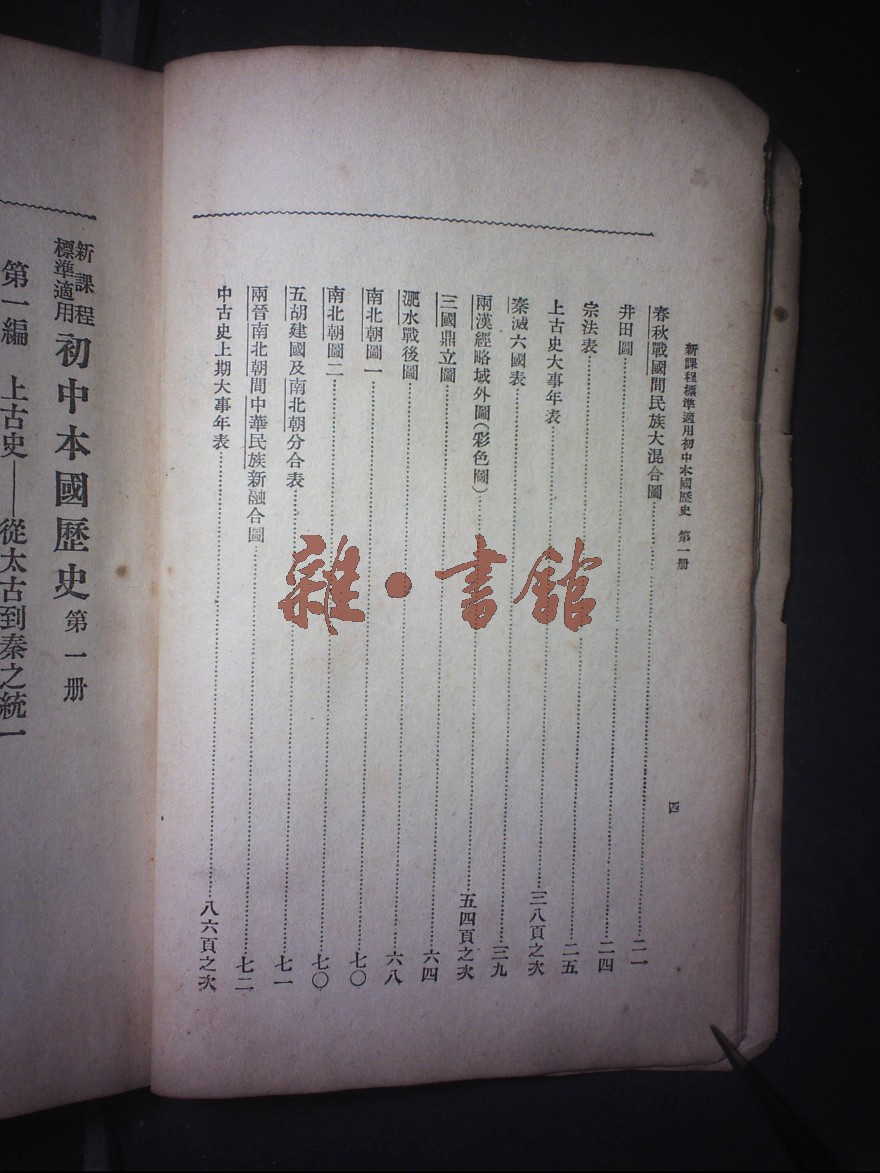 新課程標準適用初中本國歷史 第一册
四
春秋戰國間民族大混合圖……二一
井田圖……二四
宗法表……二五
上古史大事年表……三八頁之次
秦滅六國表……三九
兩漢經略域外圖(彩色圖)……五四頁之次
三國鼎立圖……六四
淝水戰後圖……六八
南北朝圖一……七〇
南北朝圖二……七〇
五胡建國及南北朝分合表……七一
兩晉南北朝間中華民族新融合圖……七二
中古史上期大事年表……八六頁之次
新課程標準適用 初中本國歷史 第一册
第一編 上古史——從太古到秦之統一
雜·書館